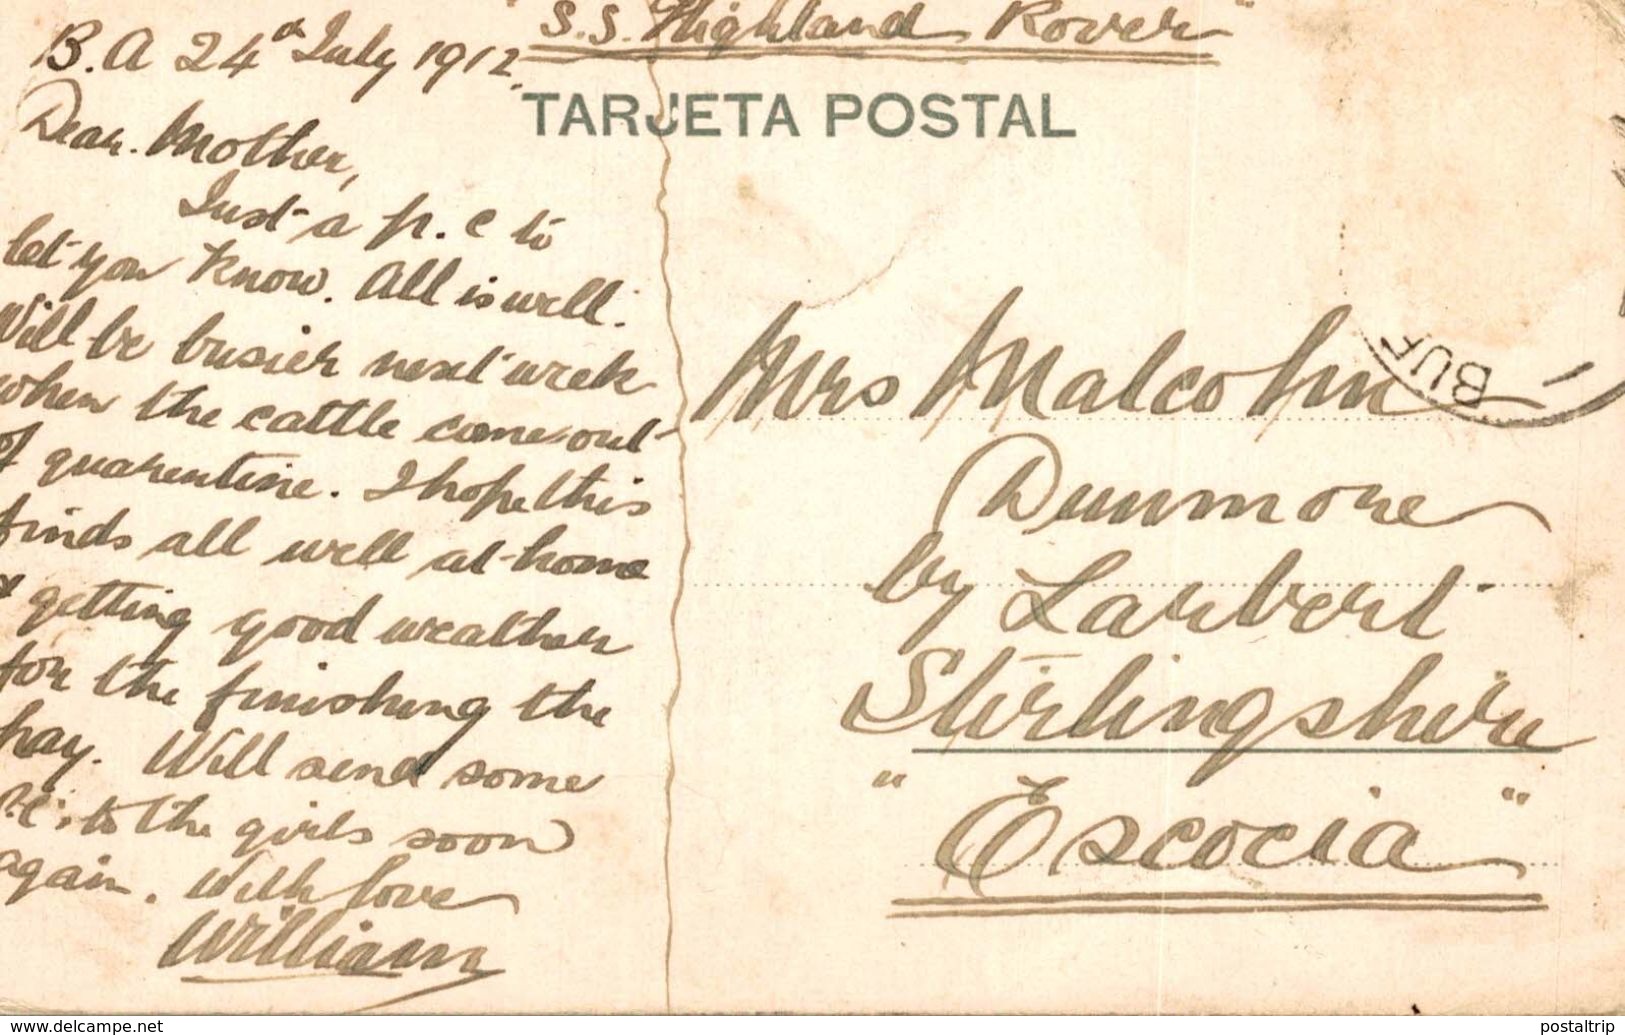 "S.S. Highland Rover"
B.A 24th July 1912.
TARJETA POSTAL
Dear Mother,
Just a p.c to
let you know. All is well.
Will be busier next week
when the cattle come out
of quarentine. I hope this
finds all well at home
& getting good weather
for the finishing the
hay. Will send some
P.C. to the girls soon
again. With love
William
Mrs Malcolm
Dunmore
by Larbert
Stirlingshire
"Escocia"
BUE
www.delcampe.net
postaltrip